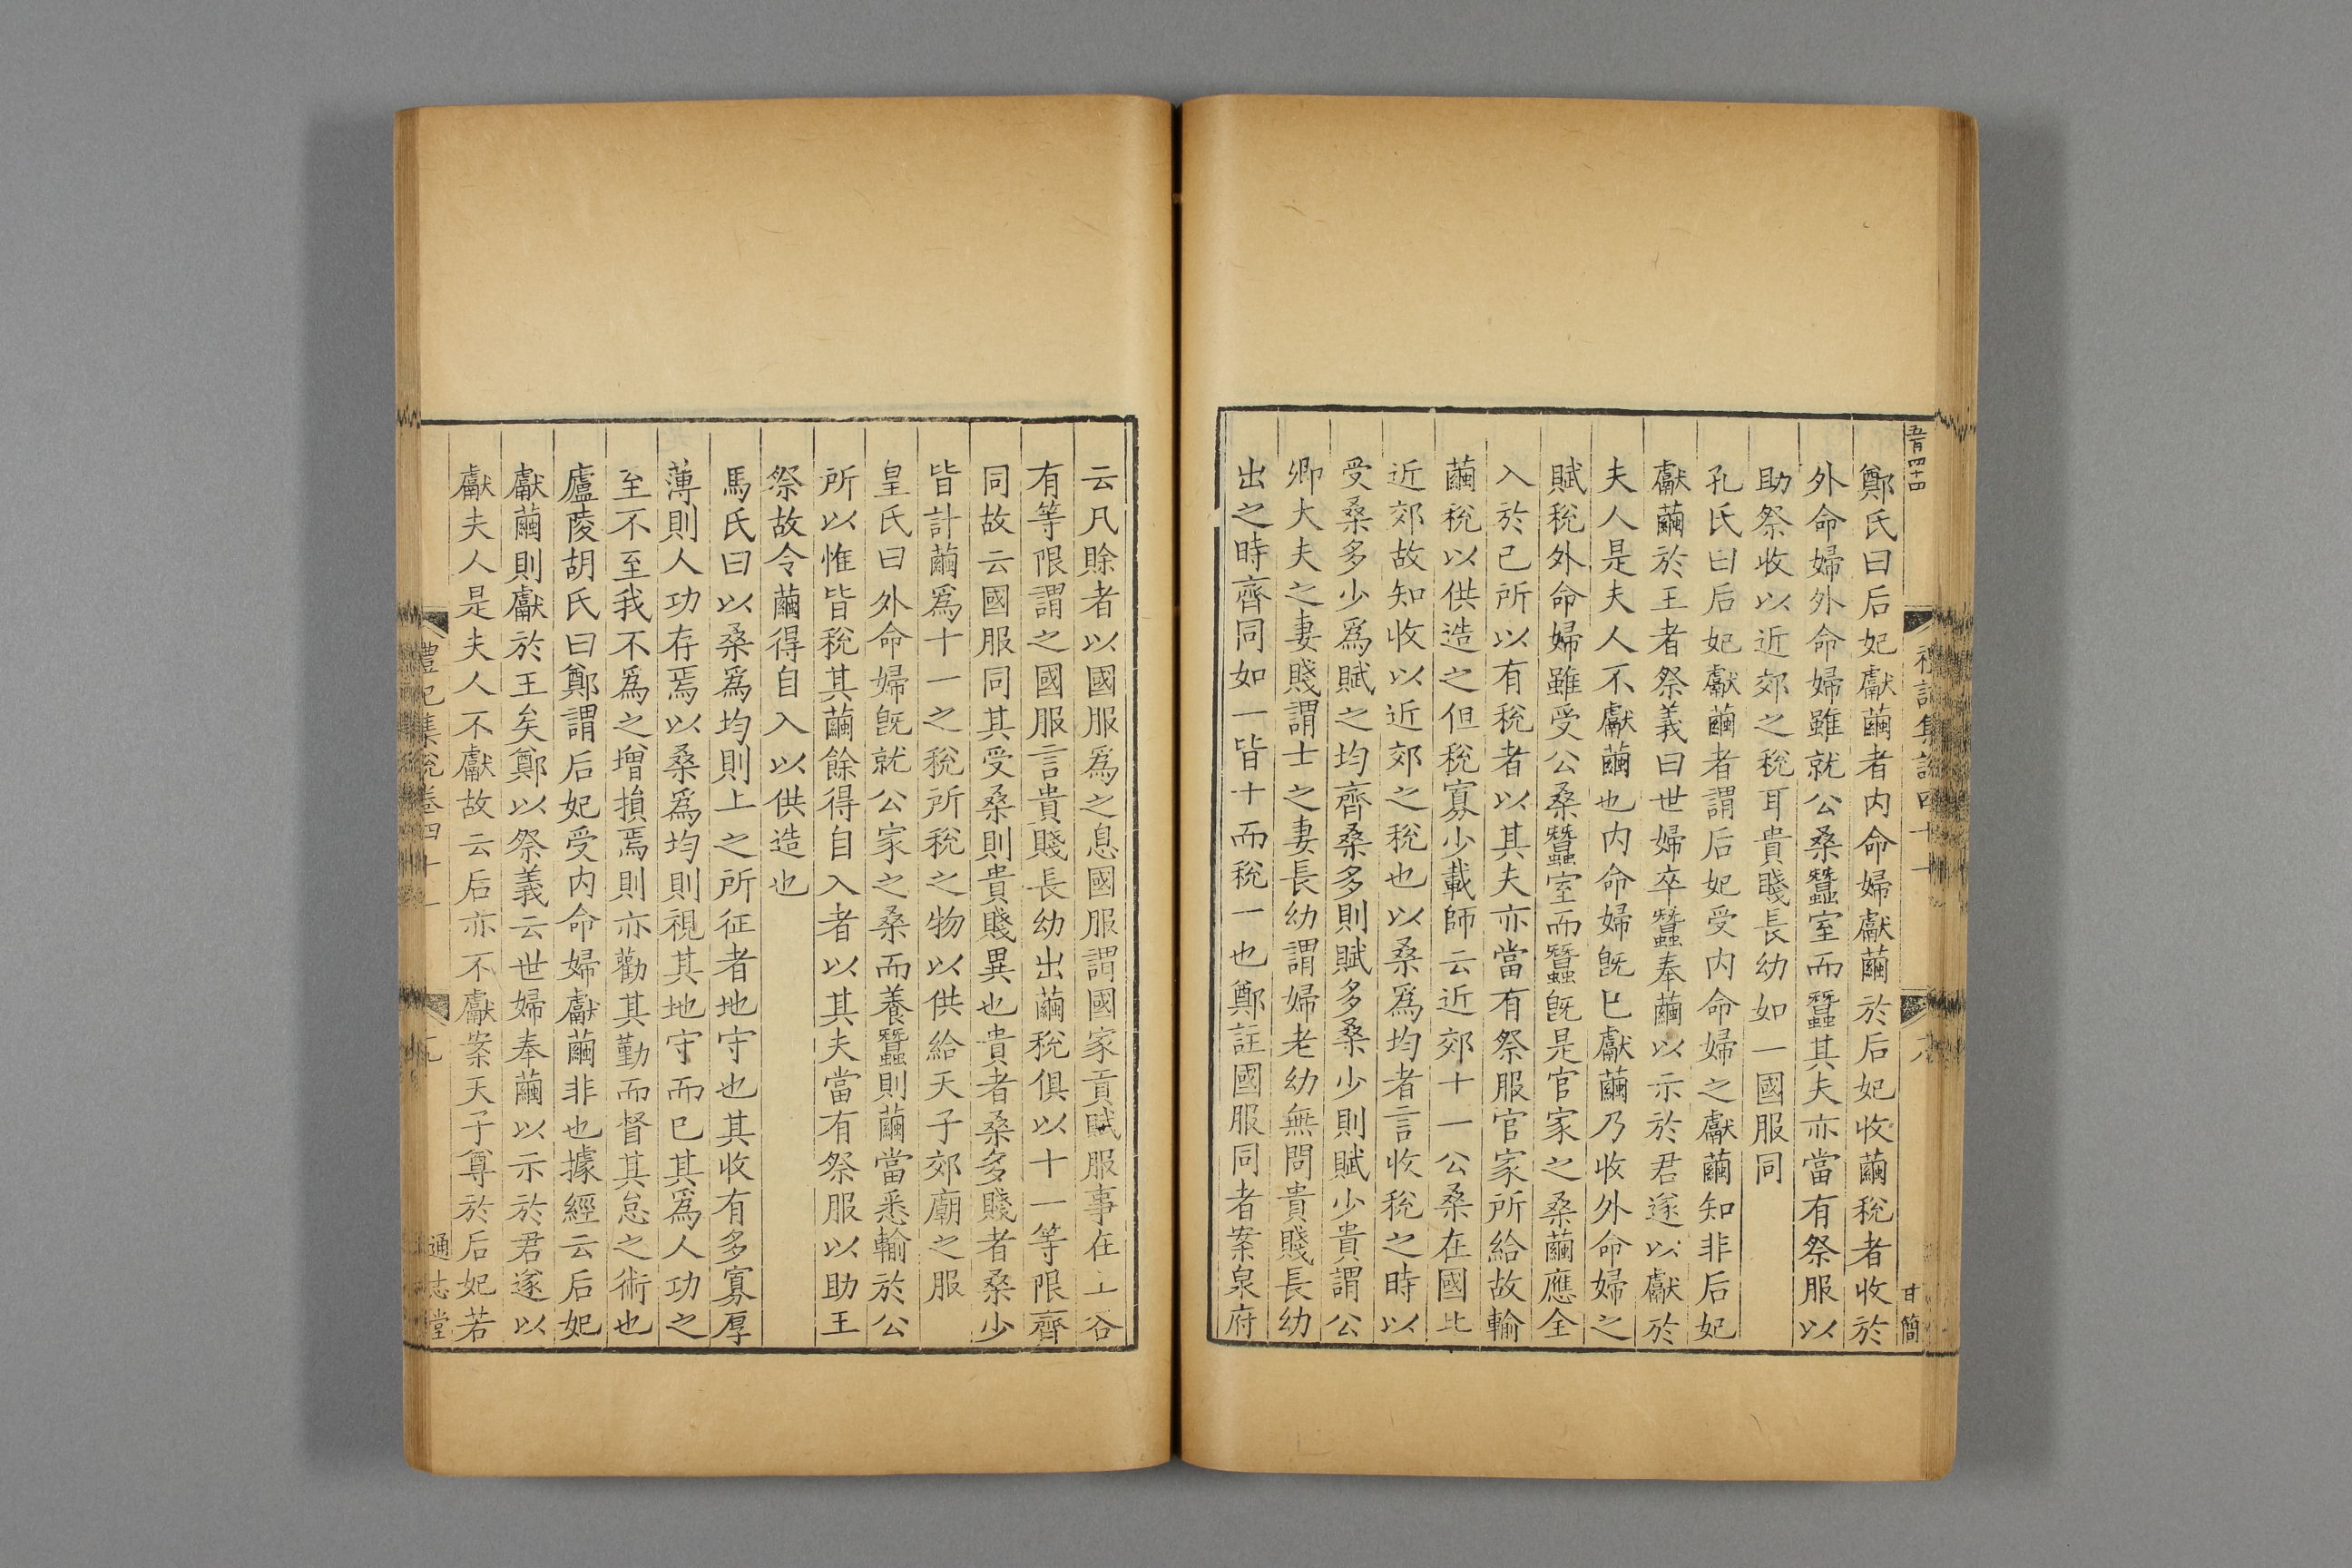 五百四十四
鄭氏曰后妃獻繭者內命婦獻繭於后妃收繭稅者收於
外命婦外命婦雖就公桑蠶室而蠶其夫亦當有祭服以
助祭收以近郊之稅耳貴賤長幼如一國服同
孔氏曰后妃獻繭者謂后妃受內命婦之獻繭知非后妃
獻繭於王者祭義曰世婦卒蠶奉繭以示於君遂以獻於
夫人是夫人不獻繭也內命婦旣已獻繭乃收外命婦之
賦稅外命婦雖受公桑蠶室而蠶旣是官家之桑繭應全
入於已所以有稅者以其夫亦當有祭服官家所給故輸
繭稅以供造之但稅寡少載師云近郊十一公桑在國北
近郊故知收以近郊之稅也以桑爲均者言收稅之時以
受桑多少爲賦之均齊桑多則賦多桑少則賦少貴謂公
卿大夫之妻賤謂士之妻長幼謂婦老幼無問貴賤長幼
出之時齊同如一皆十而稅一也鄭註國服同者案泉府
甘簡
云凡賒者以國服爲之息國服謂國家貢賦服事在
有等限謂之國服言貴賤長幼出繭稅俱以十一等限齊
同故云國服同其受桑則貴賤異也貴者桑多賤者桑少
皆計繭爲十一之稅所稅之物以供給天子郊廟之服
皇氏曰外命婦旣就公家之桑而養蠶則繭當悉輸於公
所以惟皆稅其繭餘得自入者以其夫當有祭服以助王
祭故令繭得自入以供造也
馬氏曰以桑爲均則上之所征者地守也其收有多寡厚
薄則人功存焉以桑爲均則視其地守而已其爲人功之
至不至我不爲之增損焉則亦勸其勤而督其怠之術也
廬陵胡氏曰鄭謂后妃受內命婦獻繭非也據經云后妃
獻繭則獻於王矣鄭以祭義云世婦奉繭以示於君遂以
獻夫人是夫人不獻故云后亦不獻案天子尊於后妃若
禮記集說卷四十一
通志堂